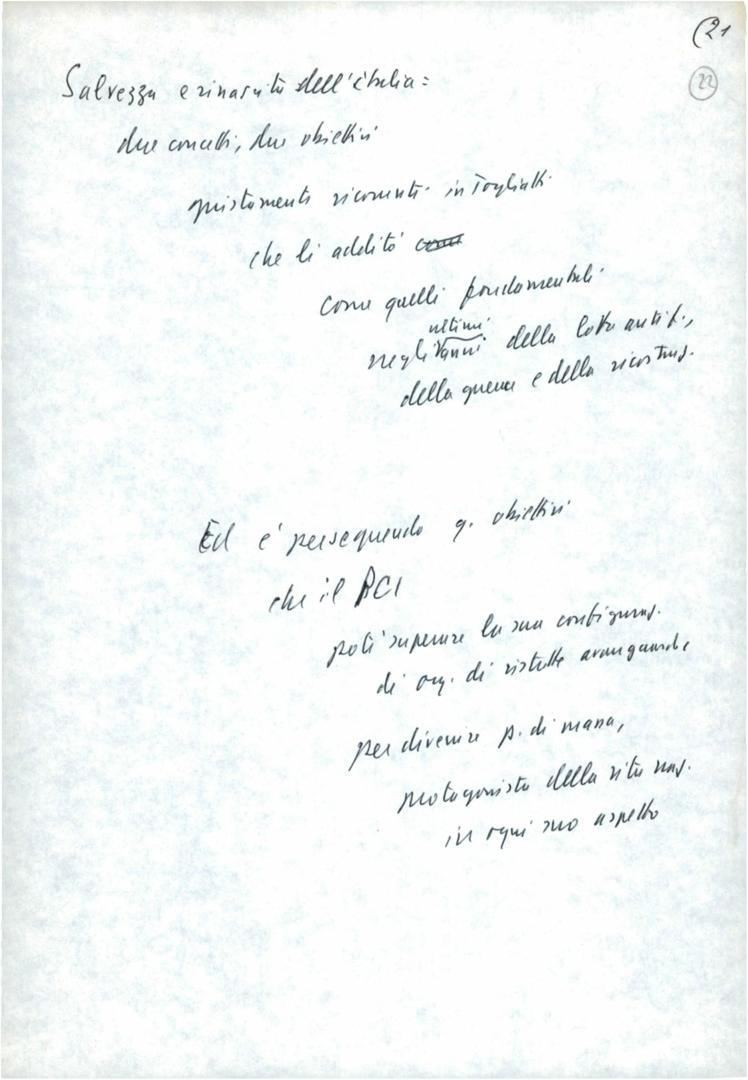 (21
22
Salvezza e rinascita dell'Italia:
due concetti, due obiettivi
giustamente ricorrenti in Togliatti
che li additò come
come quelli fondamentali
ultimi
negli anni della lotta antif.,
della guerra e della ricostruz.
Ed è perseguendo q. obiettivi
che il PCI
poté superare la sua configuraz.
di org. di ristrette avanguardie
per divenire p. di massa,
protagonista della vita naz.
in ogni suo aspetto